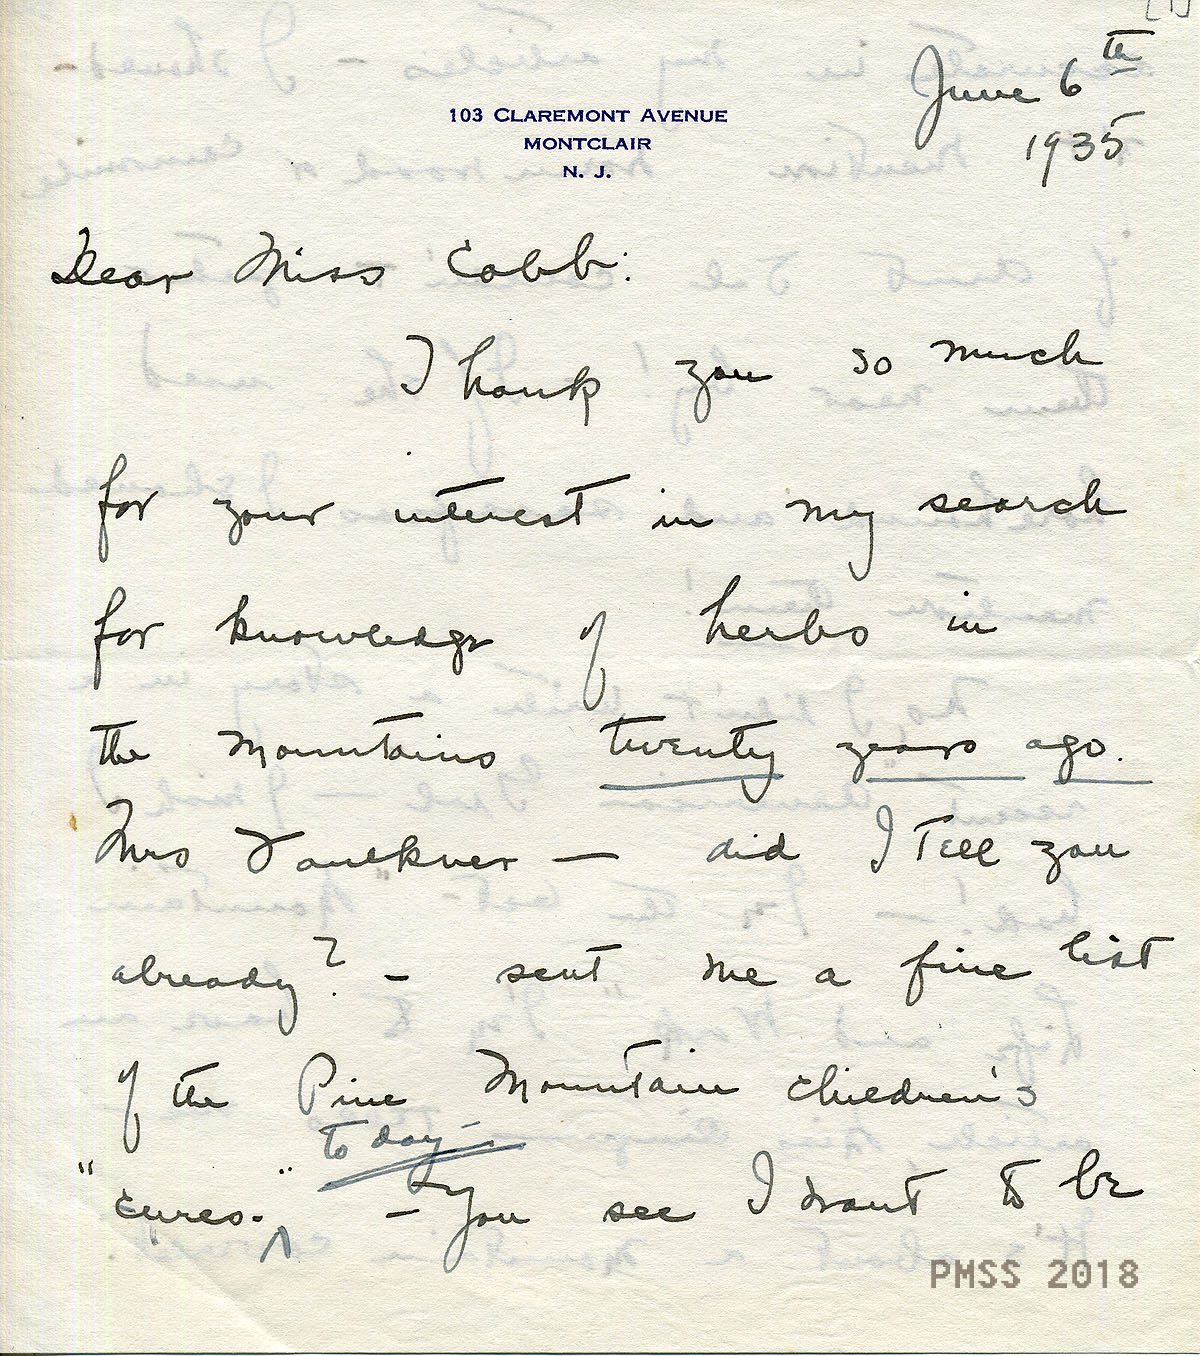 [1]
June 6th
1935
103 Claremont Avenue
Montclair
N. J.
Dear Miss Cobb:
Thank you so much
for your interest in my search
for knowledge of herbs in
the mountains twenty years ago.
Mrs Faulkner — did I tell you
already? – sent me a fine list
of the Pine Mountain children's
today –
"cures." ^ – You see I want to be
PMSS 2018